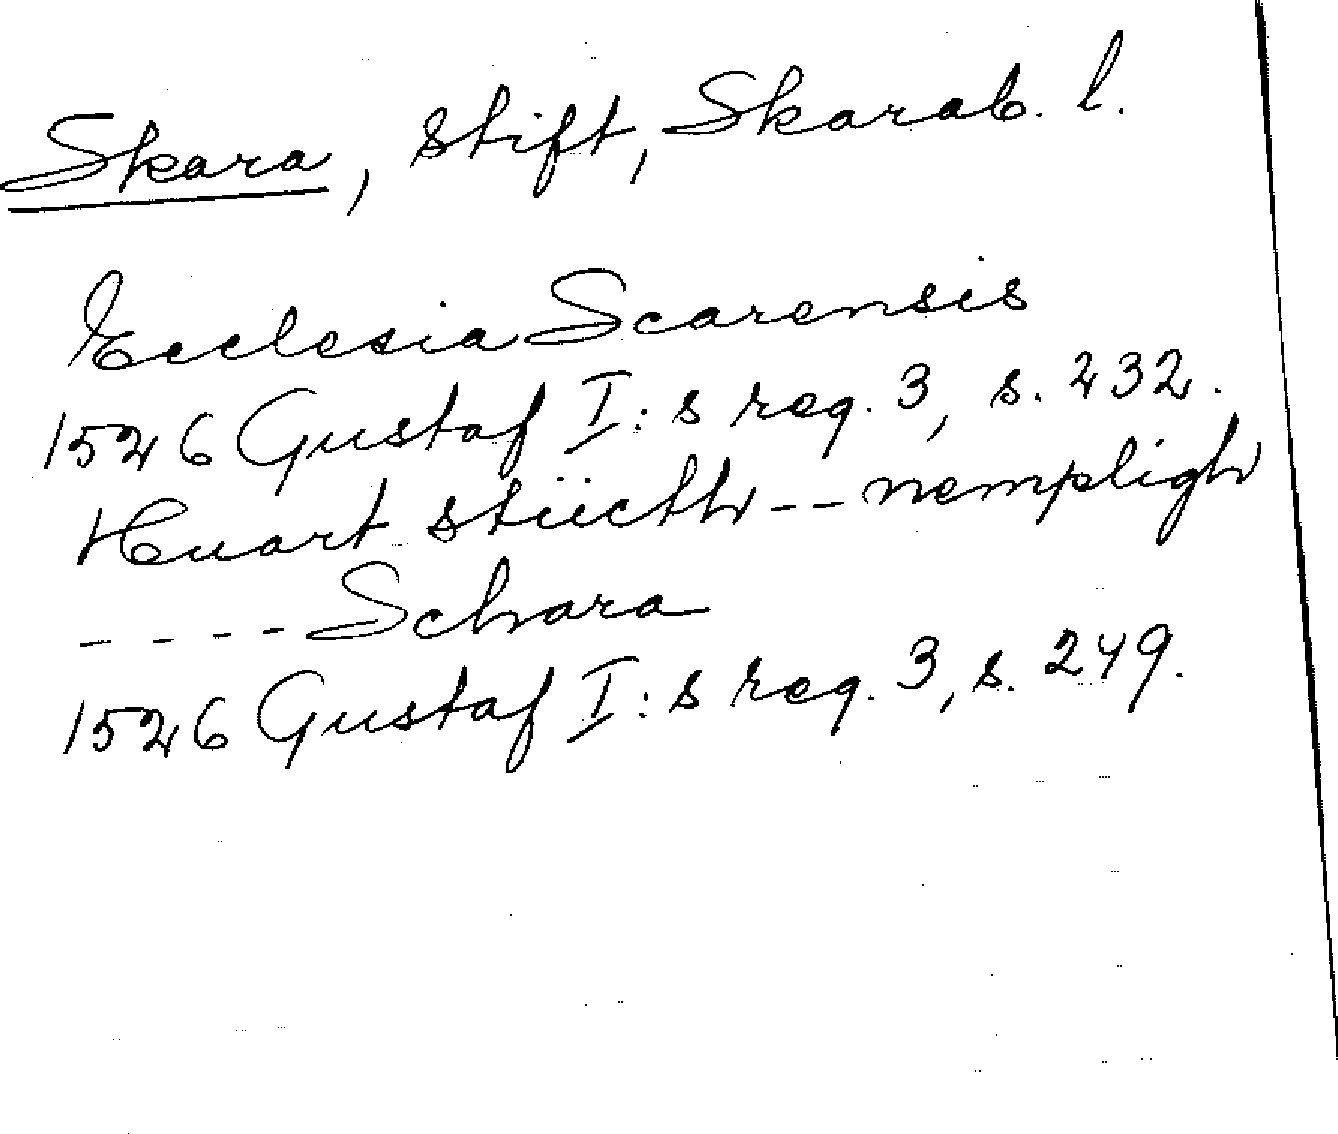 Skara, Stift, Skarab. l.
Ecclesia Scarensis
1526 Gustaf I:s reg. 3, s. 232.
Huart stiicth -- nempligh
---- Schara
1526 Gustaf I:s reg. 3, s. 249.